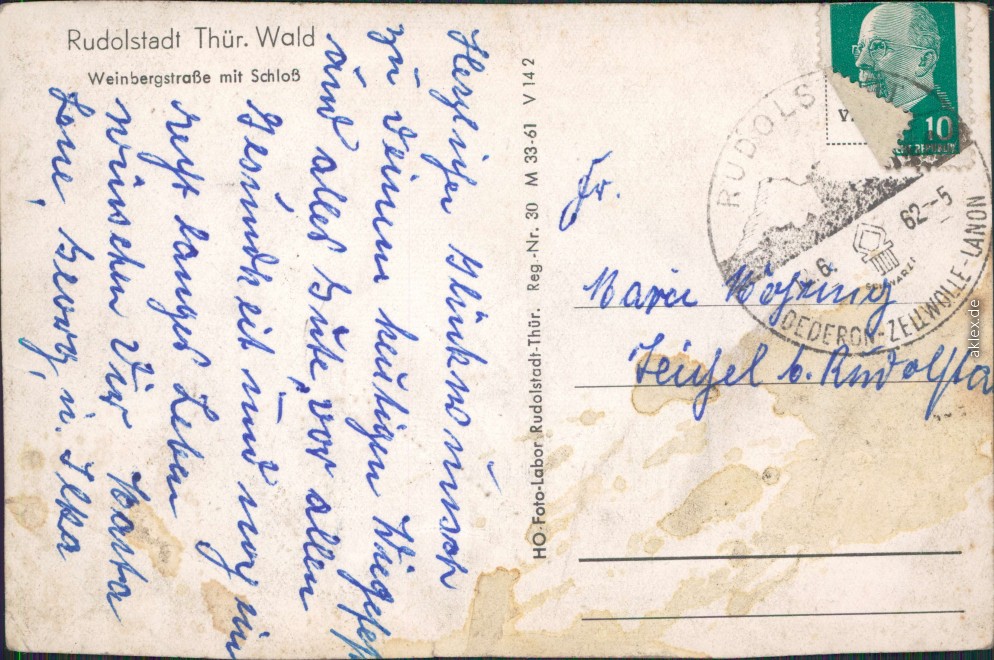 Rudolstadt Thür. Wald
Weinbergstraße mit Schloß
Herzlichen Glückwunsch
zu Deinem heutigen Wiegefest
und alles Gute, vor allen
Gesundheit und noch ein
recht langes Leben
wünschen Dir
Lene, Georg, u. Ilka
HO-Foto-Labor Rudolstadt-Thür. Reg.-Nr. 30 M 33-61 V 14 2
10
RUDOLST
6. 62--5
DEDERON-ZELLWOLLE-LANON
Fr.
Marie
b. Rudolsta
aklex.de